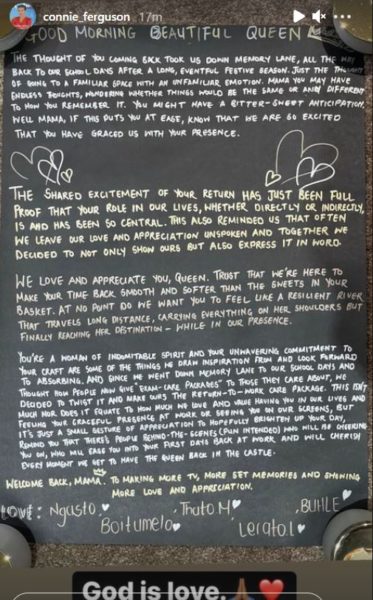 connie_ferguson 17m
GOOD MORNING BEAUTIFUL QUEEN
THE THOUGHT OF YOU COMING BACK TOOK US DOWN MEMORY LANE, ALL THE WAY
BACK TO OUR SCHOOL DAYS AFTER A LONG, EVENTFUL FESTIVE SEASON. JUST THE THOUGHT
OF GOING TO A FAMILIAR SPACE WITH AN UNFAMILIAR EMOTION. MAMA YOU MAY HAVE
ENDLESS THOUGHTS, WONDERING WHETHER THINGS WOULD BE THE SAME OR ANY DIFFERENT
TO HOW YOU REMEMBER IT. YOU MIGHT HAVE A BITTER-SWEET ANTICIPATION.
WELL MAMA, IF THIS PUTS YOU AT EASE, KNOW THAT WE ARE SO EXCITED
THAT YOU HAVE GRACED US WITH YOUR PRESENCE.
THE SHARED EXCITEMENT OF YOUR RETURN HAS JUST BEEN FULL
PROOF THAT YOUR ROLE IN OUR LIVES, WHETHER DIRECTLY OR INDIRECTLY,
IS AND HAS BEEN SO CENTRAL. THIS ALSO REMINDED US THAT OFTEN
WE LEAVE OUR LOVE AND APPRECIATION UNSPOKEN AND TOGETHER WE
DECIDED TO NOT ONLY SHOW OURS BUT ALSO EXPRESS IT IN WORD.
WE LOVE AND APPRECIATE YOU, QUEEN. TRUST THAT WE'RE HERE TO
MAKE YOUR TIME BACK SMOOTH AND SOFTER THAN THE SWEETS IN YOUR
BASKET. AT NO POINT DO WE WANT YOU TO FEEL LIKE A RESILIENT RIVER
THAT TRAVELS LONG DISTANCE, CARRYING EVERYTHING ON HER SHOULDERS BUT
FINALLY REACHING HER DESTINATION - WHILE IN OUR PRESENCE.
YOU'RE A WOMAN OF INDOMITABLE SPIRIT AND YOUR UNWAVERING COMMITMENT TO
YOUR CRAFT ARE SOME OF THE THINGS WE DRAW INSPIRATION FROM AND LOOK FORWARD
TO ABSORBING. AND SINCE WE WENT DOWN MEMORY LANE TO OUR SCHOOL DAYS AND
THOUGHT HOW PEOPLE NOW GIVE "EXAM-CARE PACKAGES" TO THOSE THEY CARE ABOUT, WE
DECIDED TO TWIST IT AND MAKE OURS THE RETURN-TO-WORK CARE PACKAGE. THIS ISN'T
MUCH NOR DOES IT EQUATE TO HOW MUCH WE LOVE AND VALUE HAVING YOU IN OUR LIVES AND
FEELING YOUR GRACEFUL PRESENCE AT WORK OR SEEING YOU ON OUR SCREENS, BUT
IT'S JUST A SMALL GESTURE OF APPRECIATION TO HOPEFULLY BRIGHTEN UP YOUR DAY,
REMIND YOU THAT THERE'S PEOPLE BEHIND-THE-SCENES (PUN INTENDED) WHO WILL BE CHEERING
YOU ON, WHO WILL EASE YOU INTO YOUR FIRST DAYS BACK AT WORK AND WILL CHERISH
EVERY MOMENT WE GET TO HAVE THE QUEEN BACK IN THE CASTLE.
WELCOME BACK, MAMA. TO MAKING MORE TV, MORE SET MEMORIES AND SHOWING
MORE LOVE AND APPRECIATION.
LOVE: Ngusto, Thato M, BUHLE
Boitumelo Lerato.L
God is love.🙏🏾❤️